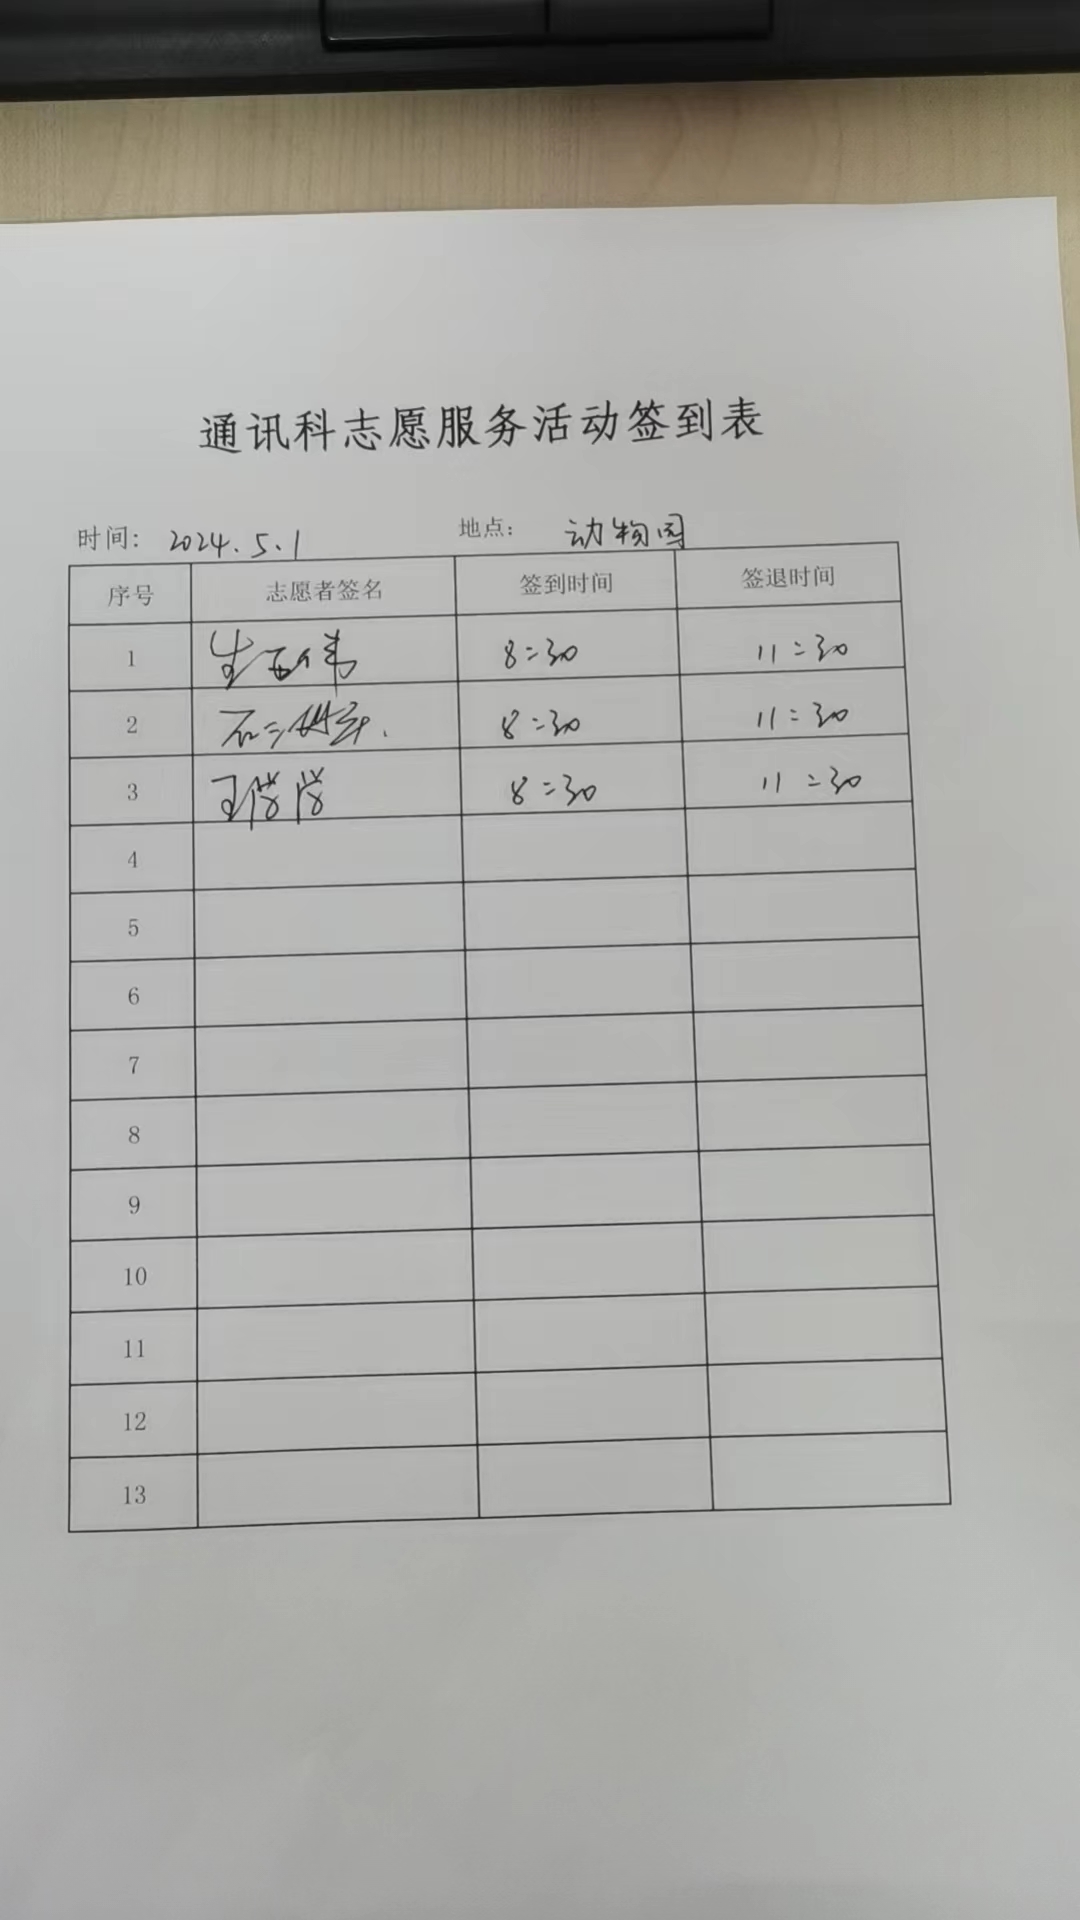 通讯科志愿服务活动签到表
时间: 2024.5.1 地点: 动物园
序号 志愿者签名 签到时间 签退时间
1 8:30 11:30
2 8:30 11:30
3 8:30 11:30
4
5
6
7
8
9
10
11
12
13